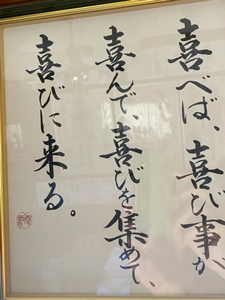 喜べば、喜び事が
喜んで、喜びを集めて、
喜びに来る。